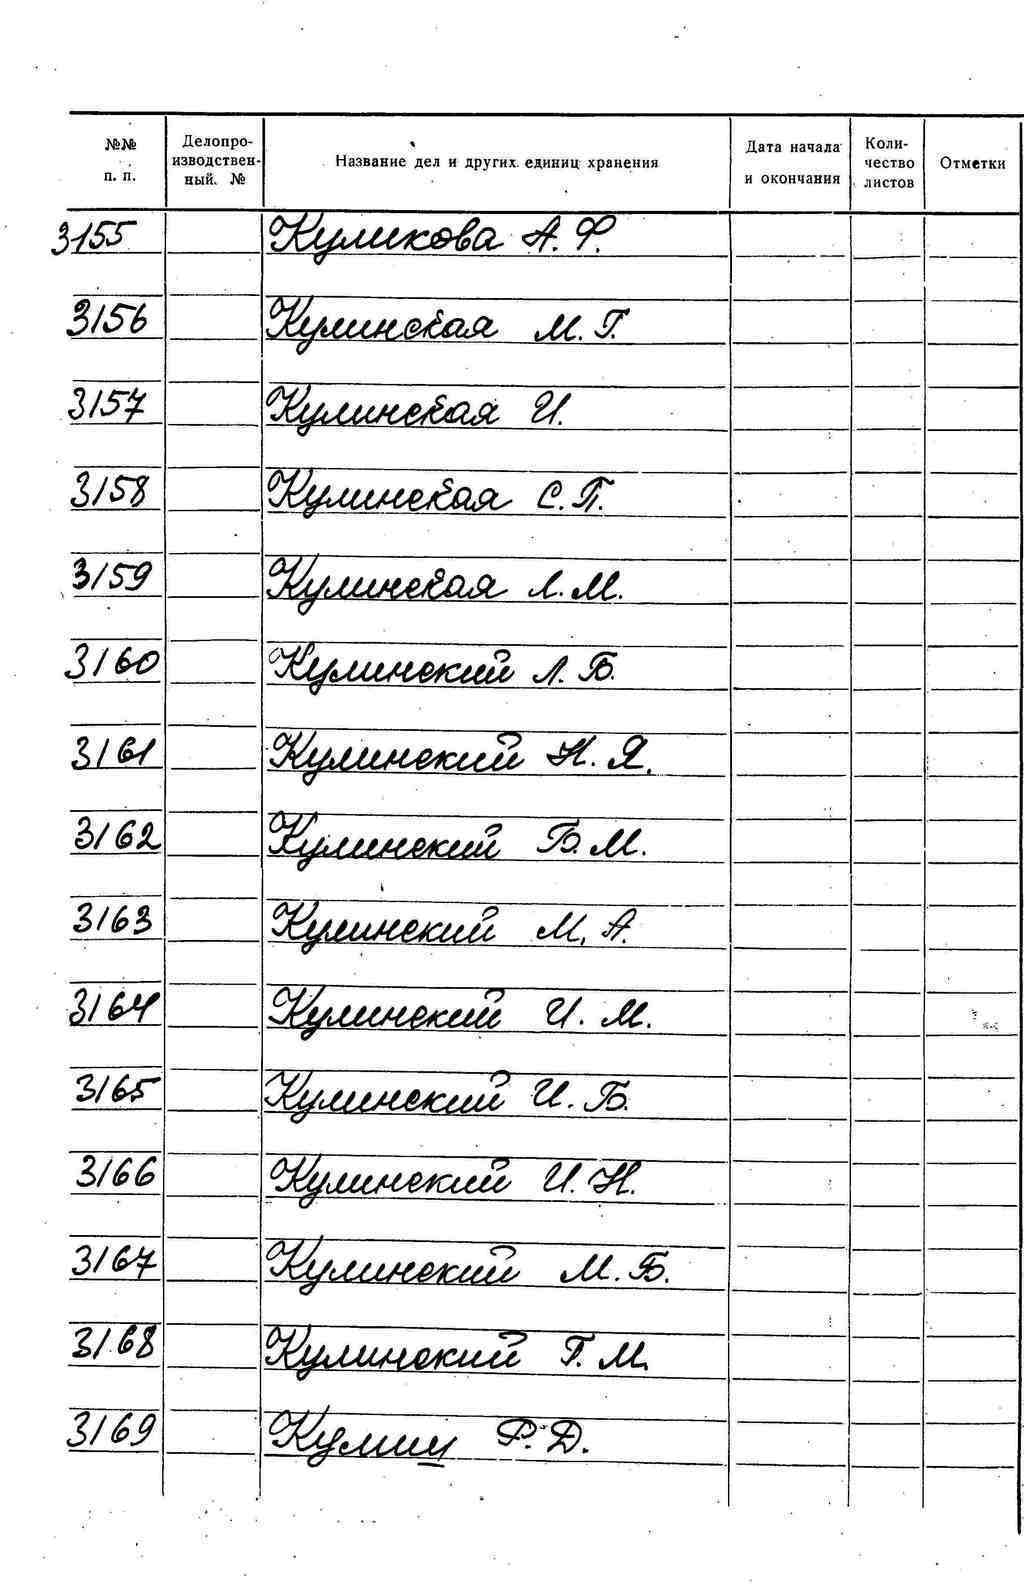 №№ п. п. Делопроизводственный. № Название дел и других единиц хранения Дата начала и окончания Количество листов Отметки
3155 Куликова А. Ф.
3156 Кулинская М. Г.
3157 Кулинская И.
3158 Кулинская С. П.
3159 Кулинская Л. М.
3160 Кулинский Л. Б.
3161 Кулинский Н. Я.
3162 Кулинский Б. М.
3163 Кулинский М. А.
3164 Кулинский И. М.
3165 Кулинский И. Б.
3166 Кулинский И. Н.
3167 Кулинский М. Б.
3168 Кулинский Г. М.
3169 Кулиш Р. Д.